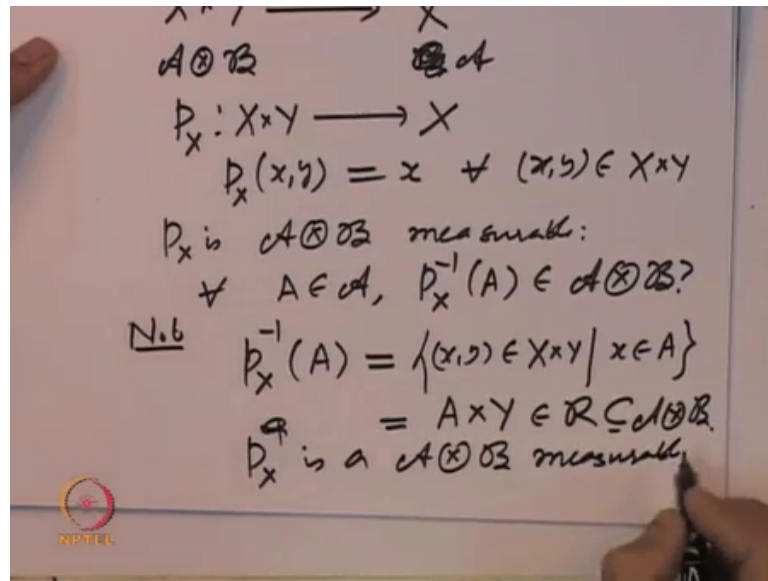 X×Y ⟶ X
𝒜⊗ℬ 𝒜
p_X : X×Y ⟶ X
p_X(x,y) = x ∀ (x,y) ∈ X×Y
p_X is 𝒜⊗ℬ measurable:
∀ A ∈ 𝒜, p_X^{-1}(A) ∈ 𝒜⊗ℬ?
Note p_X^{-1}(A) = {(x,y) ∈ X×Y | x ∈ A}
= A×Y ∈ ℛ ⊆ 𝒜⊗ℬ.
p_X is a 𝒜⊗ℬ measurable
NPTEL